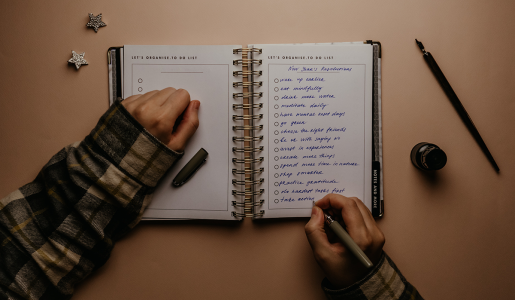 LET'S ORGANISE-TO DO LIST
LET'S ORGANISE-TO DO LIST
New Year's Resolutions
wake up earlier
eat mindfully
drink more water
meditate daily
have mindset days
go green
choose the right friends
be ok with saying no
invest in experiences
create more things
spend more time in nature
shop smarter
practice gratitude
do hardest tasks first
take